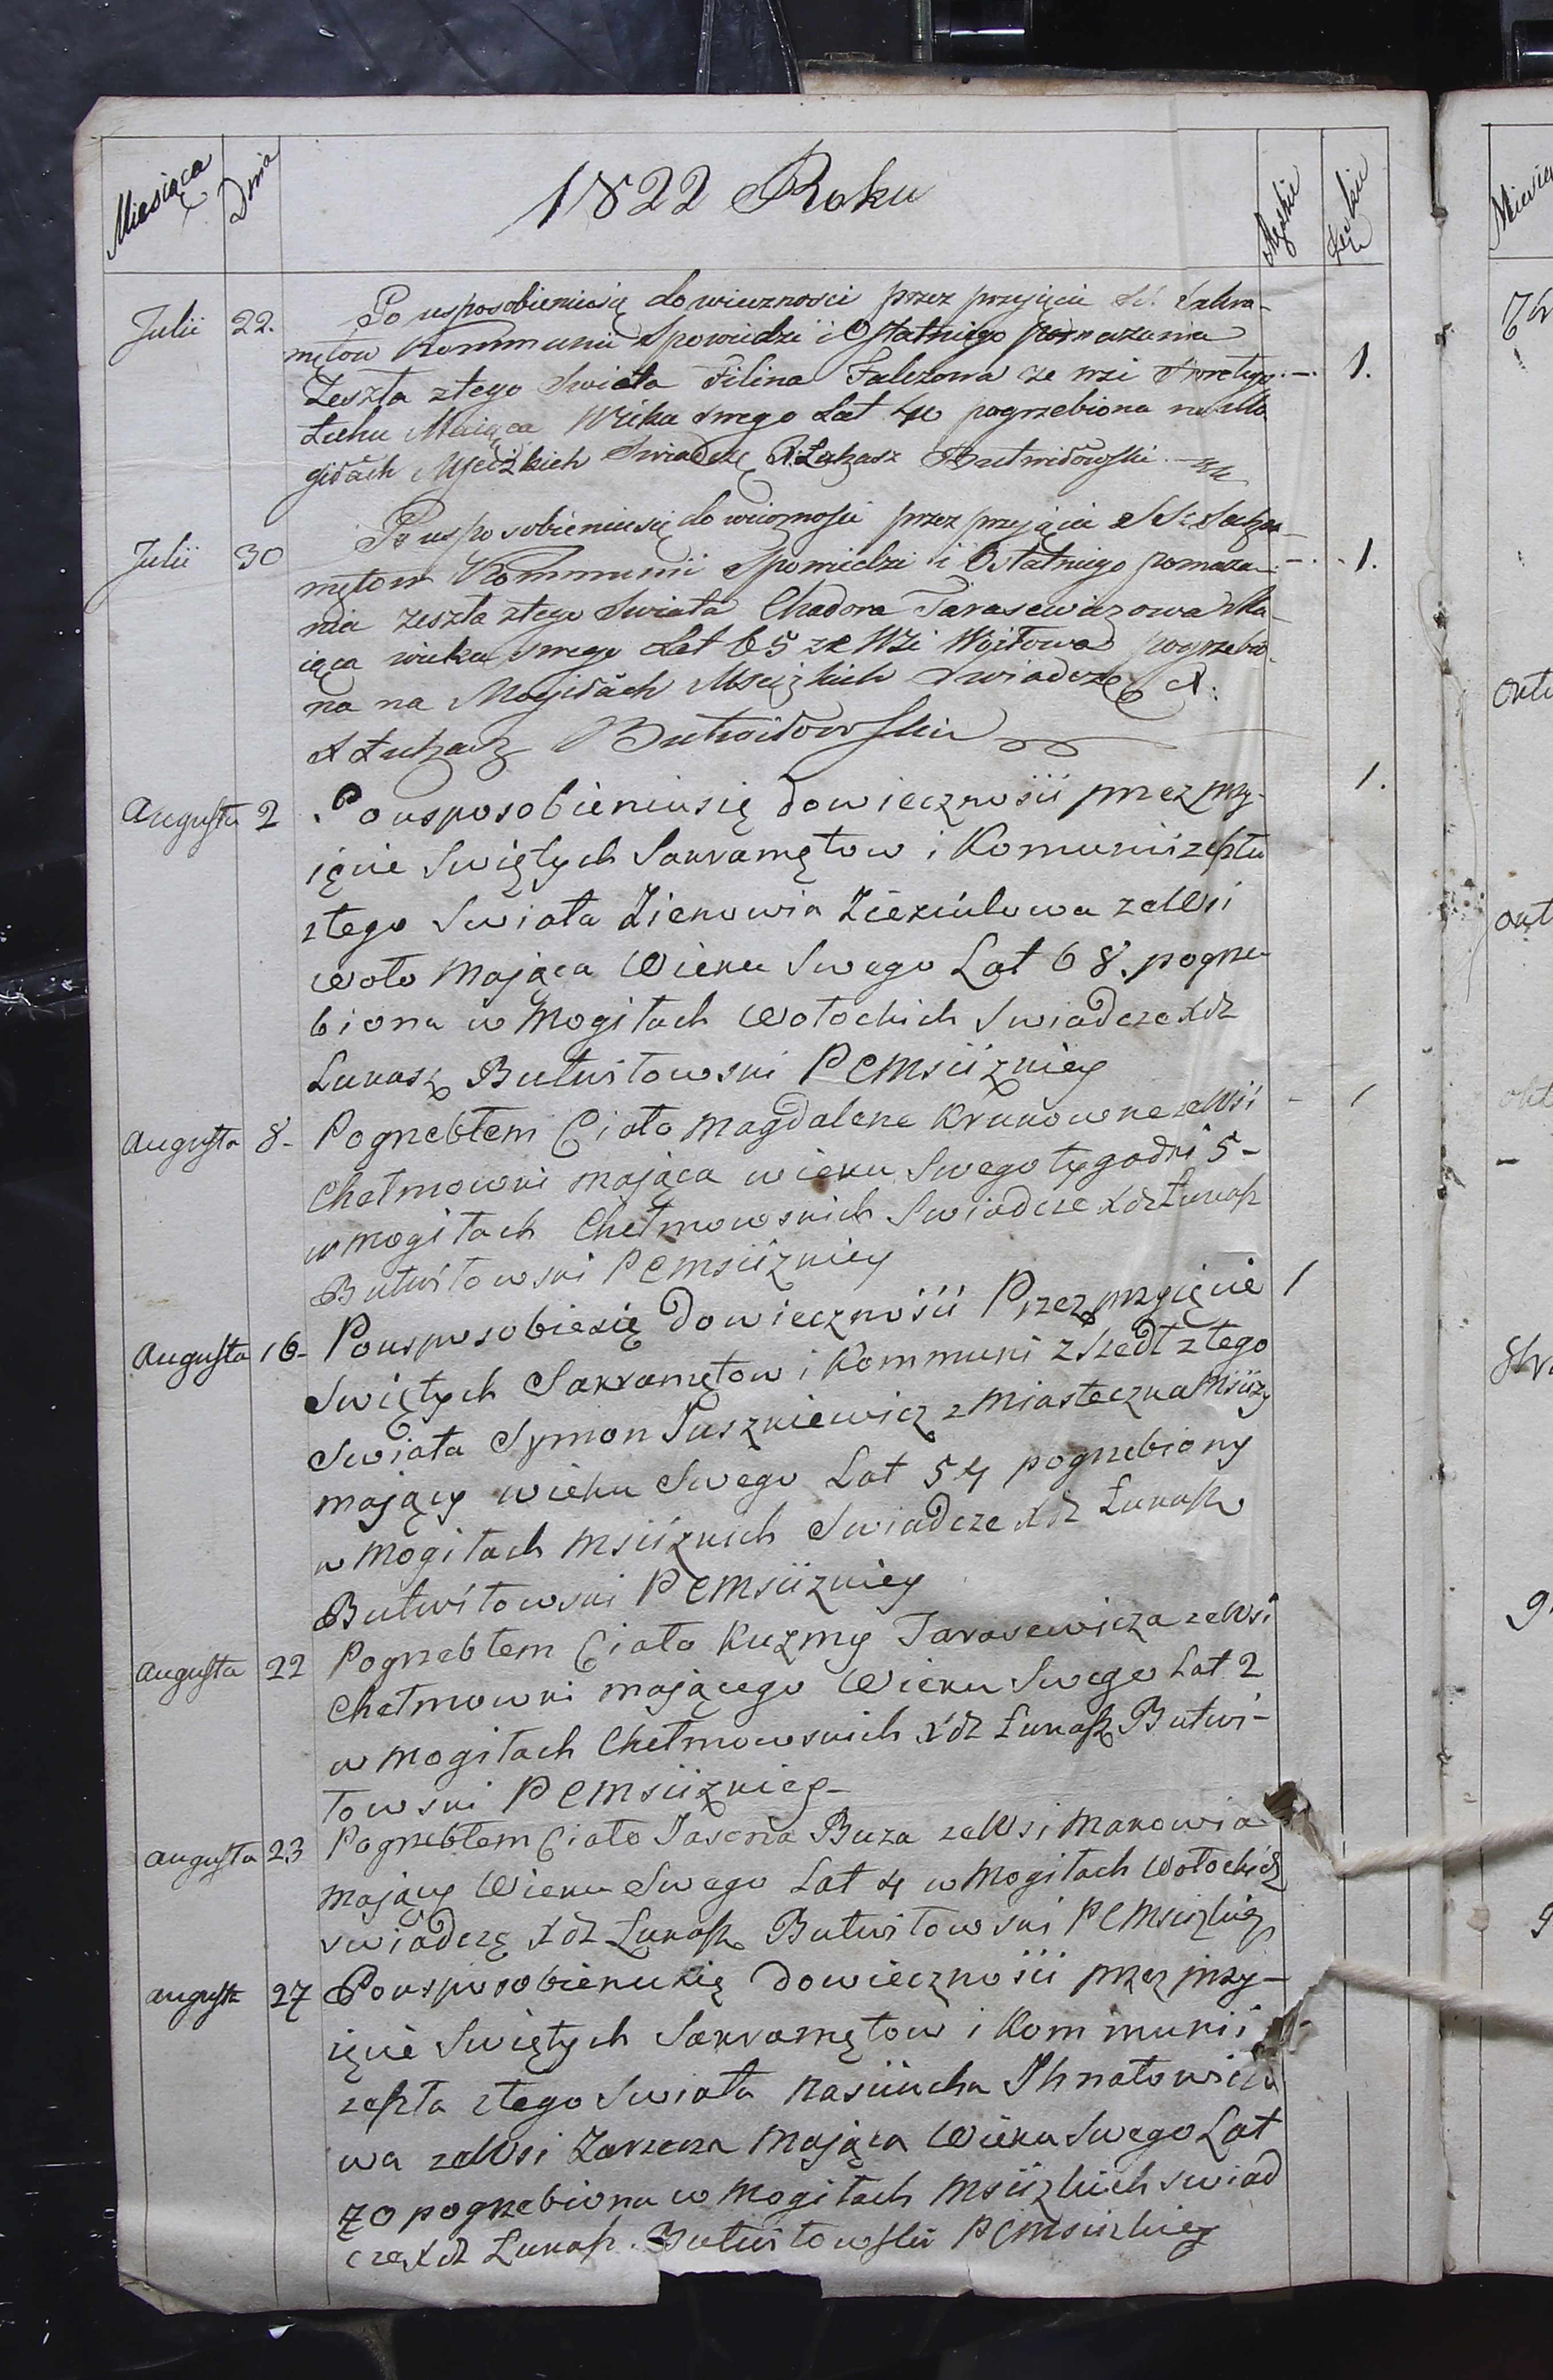 Miesiąca Dnia 1822 Roku Męskie Żęskie
Julii 22. Po usposobieniusię do wiecznosci przez przyjęcie SS. Sakra-
mętow Kommunii Spowiedzi i Ostatniego pomazania
Zeszła ztego Swiata Filina Falezowa ze wsi 1.
Łuhu Maiąca Wieku swego Lat 40 pogrzebiona na Mo
giłach Mściżkich Swiadczę X. Łukasz Butwidowski
Julii 30 Po usposobieniusię do wiecznosci przez przyjęcie SS. Sachra-
mętow Kommunii Spowiedzi i Ostatniego pomaza- 1.
nia zeszła ztego Swiata Chadora Tarasewiczowa Ma-
iąca wieku swego Lat 65 ze Wsi Wojtowa pogrzebio-
na na Mogiłach Msciżkich Swiadczę X.
X Łukasz Butwidowski
Augusta 2 Pousposobieniusię dowiecznosii przez przy- 1.
ięcie Swiętych Sakramętow i Komunii zeszła
ztego Swiata Zienowia Zieziulowa zeWsi
Woło Mająca Wieku Swego Lat 68. pogrze-
biona w Mogiłach Wołockich Swiadcze Xdz
Lukasz Butwiłowski PCMsciżkiey
Augusta 8- Pogrzebłem Ciało Magdalene Krukowne zeWsi - 1
Chełmowki mająca wieku Swego tygodni 5-
w Mogiłach Chełmowskich Swiadcze Xdz Łukasz
Butwiłowski PCMsciżkiey
Augusta 16- Pousposobiesię Dowiecznosii Przez przyięcie 1
Swiętych Sakramętow i Kommuni Zszedł ztego
Swiata Symon Puszkiewicz z Miasteczka Msciży
mający wieku Swego Lat 54 pogrzebiony
w Mogiłach Msciżkich Swiadcze Xdz Łukasz
Butwiłowski PCMsciżkiey
Augusta 22 Pogrzebłem Ciało Kuzmy Tarasewicza zeWsi
Chełmowki mającego Wieku Swego Lat 2
w Mogiłach Chełmowskich Xdz Łukasz Butwi-
łowski PCMsciżkiey-
Augusta 23 Pogrzebłem Ciało Jasona Buza zeWsi Makowia
Mający Wieku Swego Lat 4 w Mogiłach Wołockich
swiadczę Xdz Łukasz Butwiłowski PCMsciżkiey
Augusta 27 Pousposobieniusię Dowiecznosii przez przy-
ięcie Swiętych Sakramętow i Kommunii
zeszła ztego Swiata Nasciucha Ihnatowiczo
wa zeWsi Zarzecza Mająca Wieku Swego Lat
70 pogrzebiona w Mogiłach Msciżkich swiad
czę Xdz Łukasz Butwiłowski PCMsciżkiey